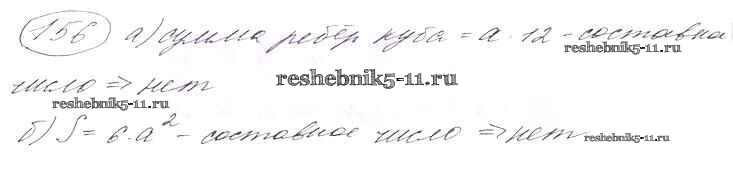 156 а) сумма рёбер куба = a · 12 - составное
reshebnik5-11.ru
число => нет
reshebnik5-11.ru
reshebnik5-11.ru
б) S = 6 · a² - составное число => нет
reshebnik5-11.ru